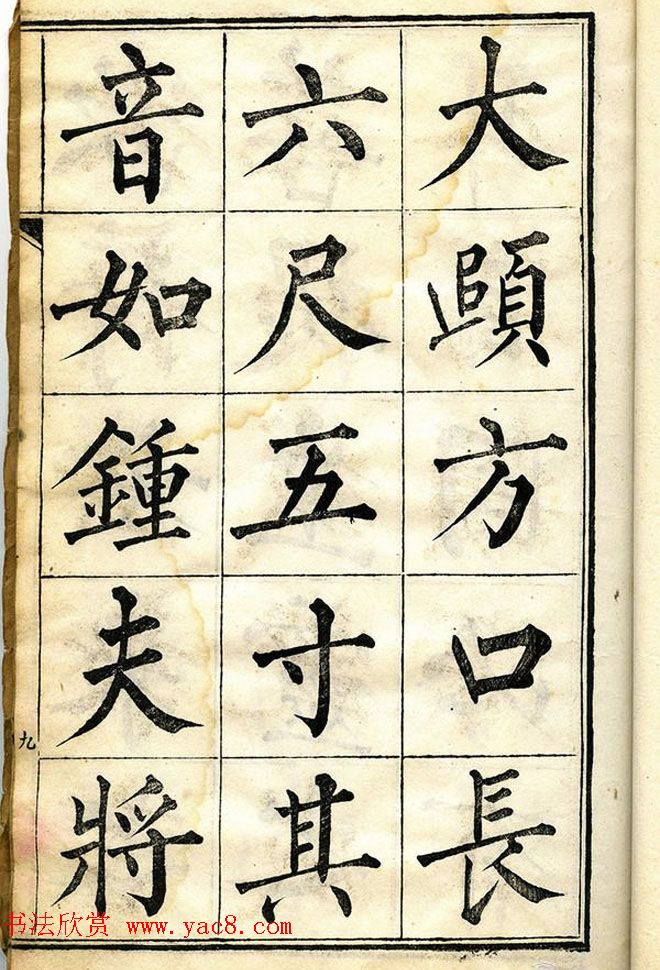 大頤方口長
六尺五寸其
音如鍾夫將
九
书法欣赏 www.yac8.com